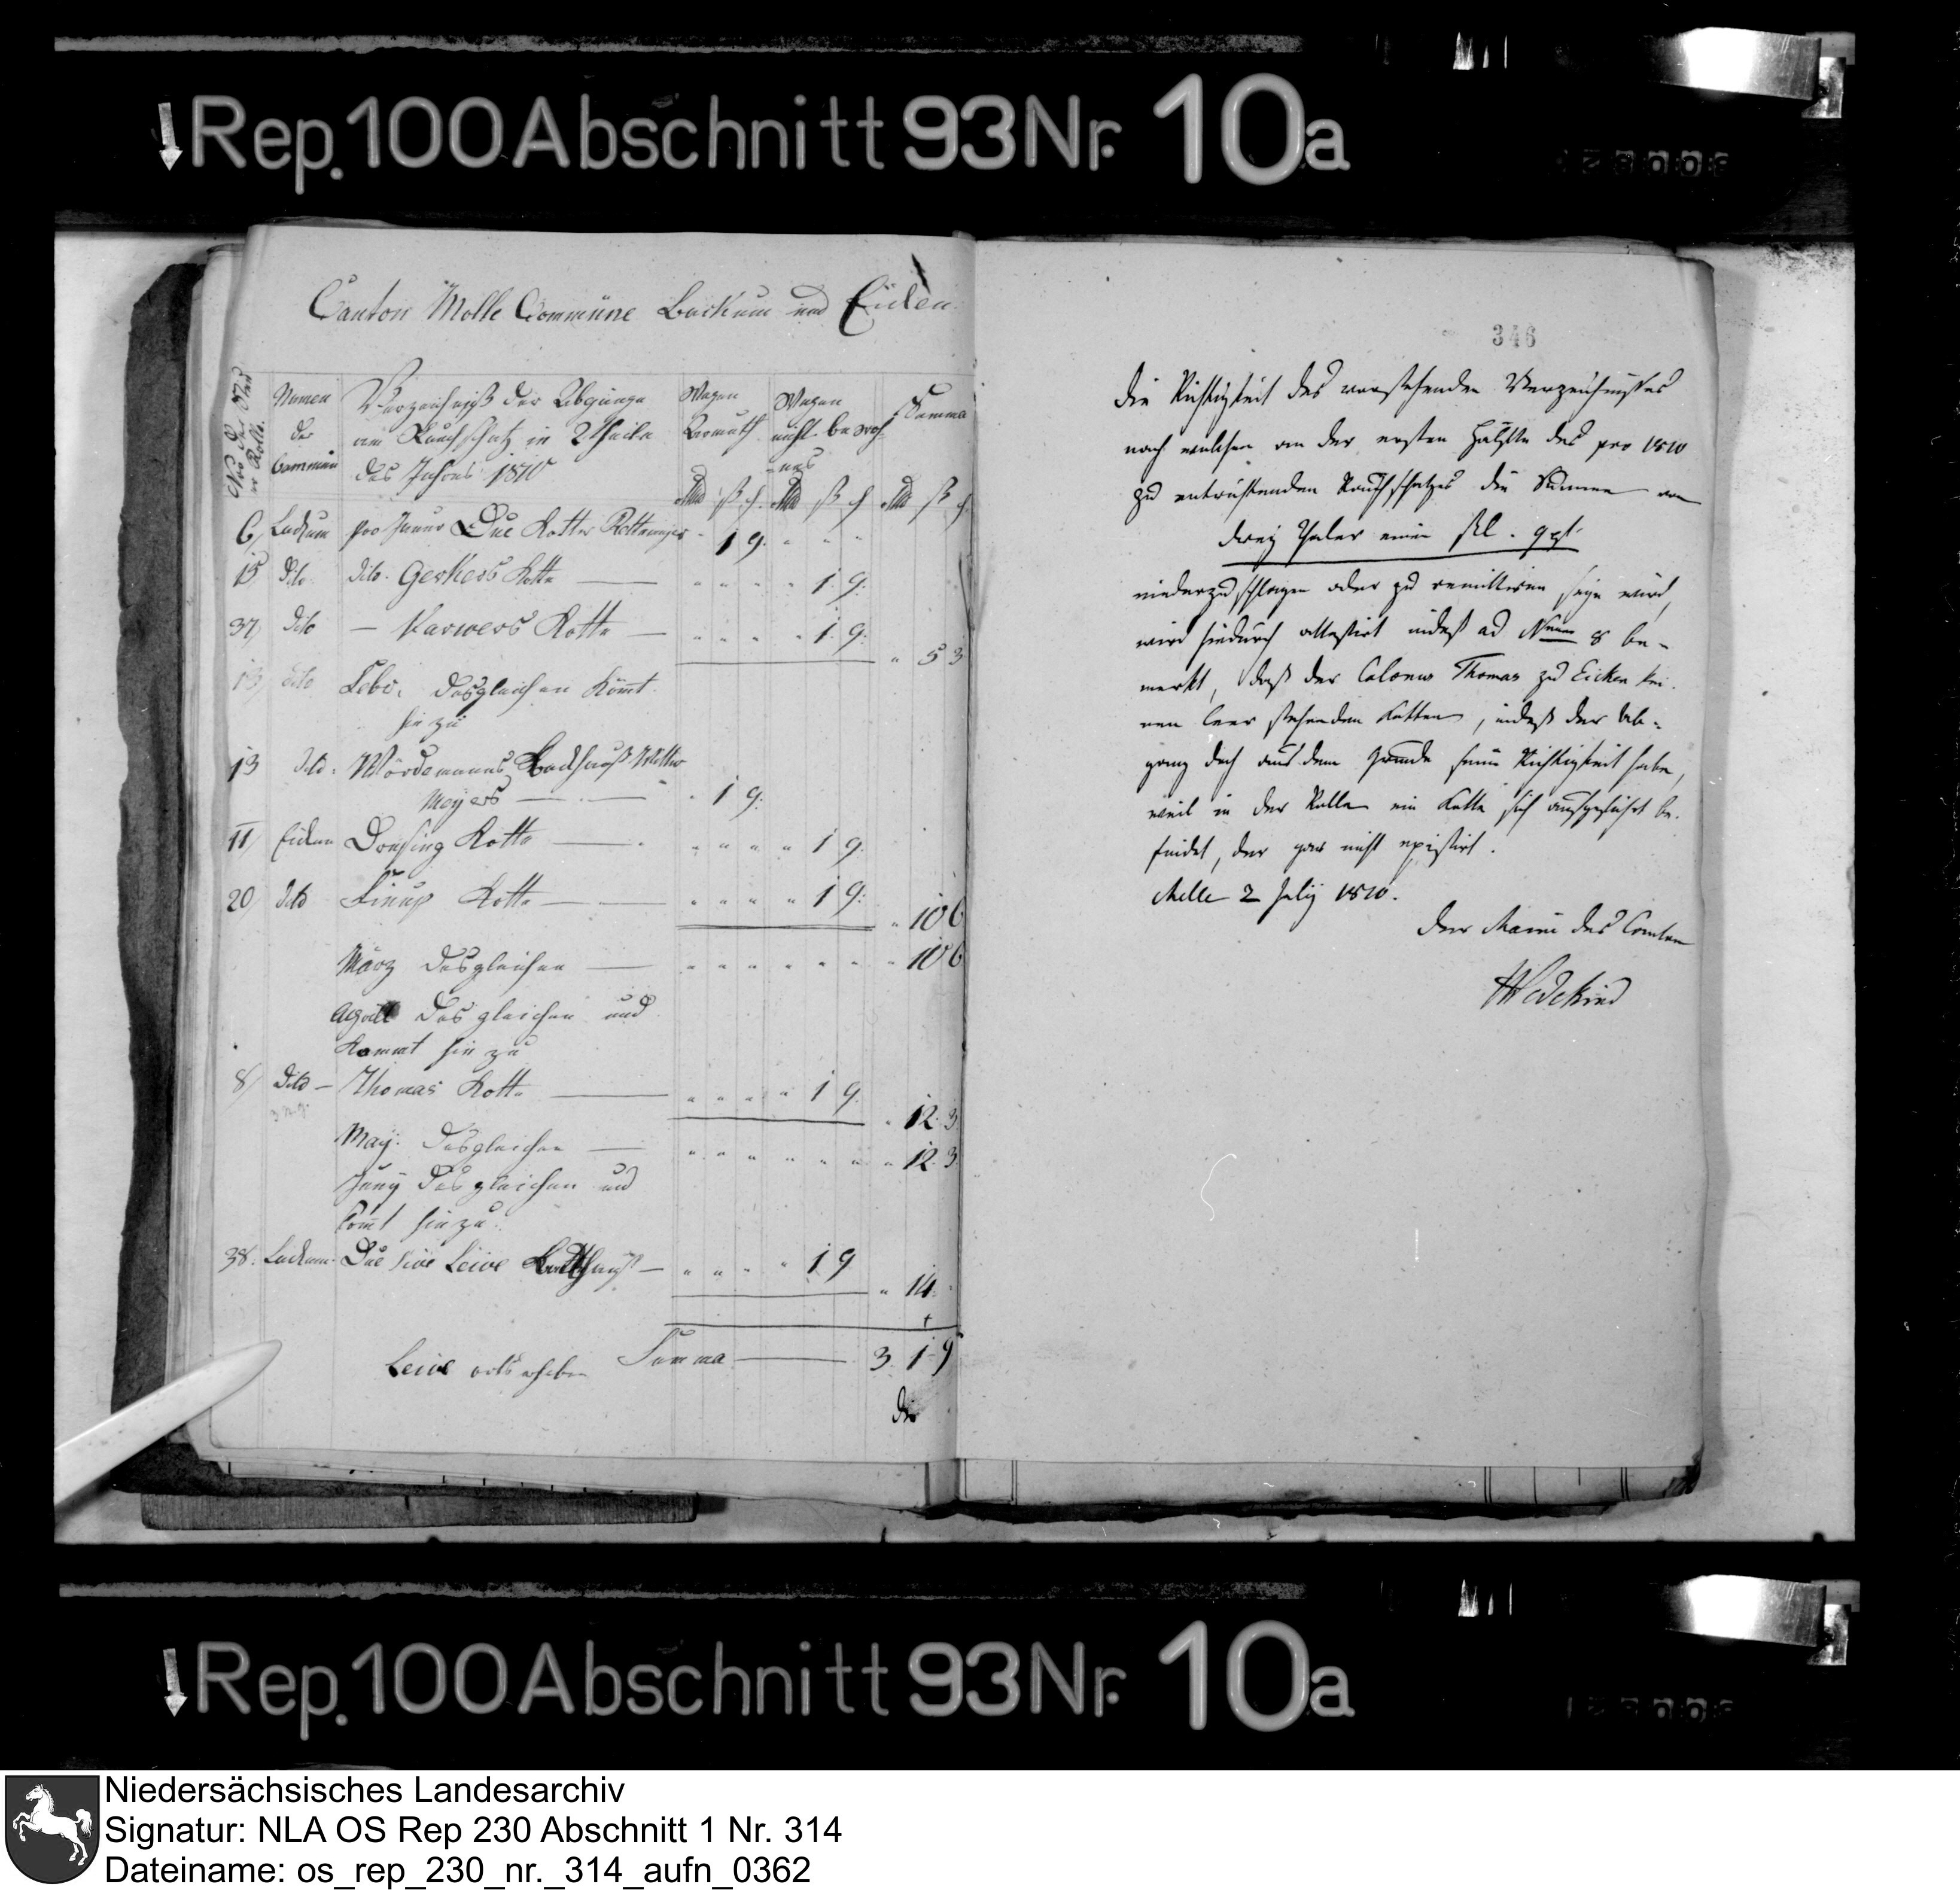 Rep. 100 Abschnitt 93 Nr. 10a
Canton Melle Commüne Backum und Eicken
Nro der Rolle
Namen der Commün
Verzeichniß der Abgänge
am Rauchschatz in 2 Theile
des Jahres 1810
Wegen Armuth
Wegen nicht bewoh-
nes
Summa
6, Backum pro Januar Due Kotten Rottmeyer " 1 9. " " "
15 dito dito. Gerkers Kotte — " " " " 1. 9.
37, dito — Karwers Kotte — " " " " 1. 9:
" 5 3
13, dito Febr. desgleichen kömt
hin zu
13 dito. Wördemanns Backhauß Witwe
Meyers — " 1 9:
11, Eicken Donsing Kotte — " " " " 1 9.
20, dito Finup Kotte — " " " " 1 9:
" 10 6
März desgleichen — " " " " " " " 10 6
April desgleichen und
kommt hin zu
8, dito — Thomas Kotte — " " " " 1 9.
" 12. 3.
May. desgleichen — " " " " " " " 12. 3
Juny desgleichen und
komt hinzu.
38. Backum. Due sive Leive Backhauß — " " " " 1 9
" 14. "
Summa — 3. 1 9
Leive
Die
346
Die Richtigkeit des vorstehenden Verzeichnißes
nach welchem an der ersten Hälfte des pro 1810
zu entrichtenden Rauchschatzes die Summe von
drey Thaler einen ßl. 9 pf.
niederzuschlagen oder zu remittiren seyn wird,
wird hiedurch attestirt indeß ad Num 8 be-
merkt, daß der Colonus Thomas zu Eicken kei-
nen leer stehenden Kotten, indeß der Ab-
gang doch aus dem Grunde seine Richtigkeit habe,
weil in der Rolle ein Kotte sich aufgeführt be-
findet, der gar nicht existirt.
Melle 2 July 1810.
Der Maire des Canton
Wedekind
Rep. 100 Abschnitt 93 Nr. 10a
Niedersächsisches Landesarchiv
Signatur: NLA OS Rep 230 Abschnitt 1 Nr. 314
Dateiname: os_rep_230_nr._314_aufn_0362